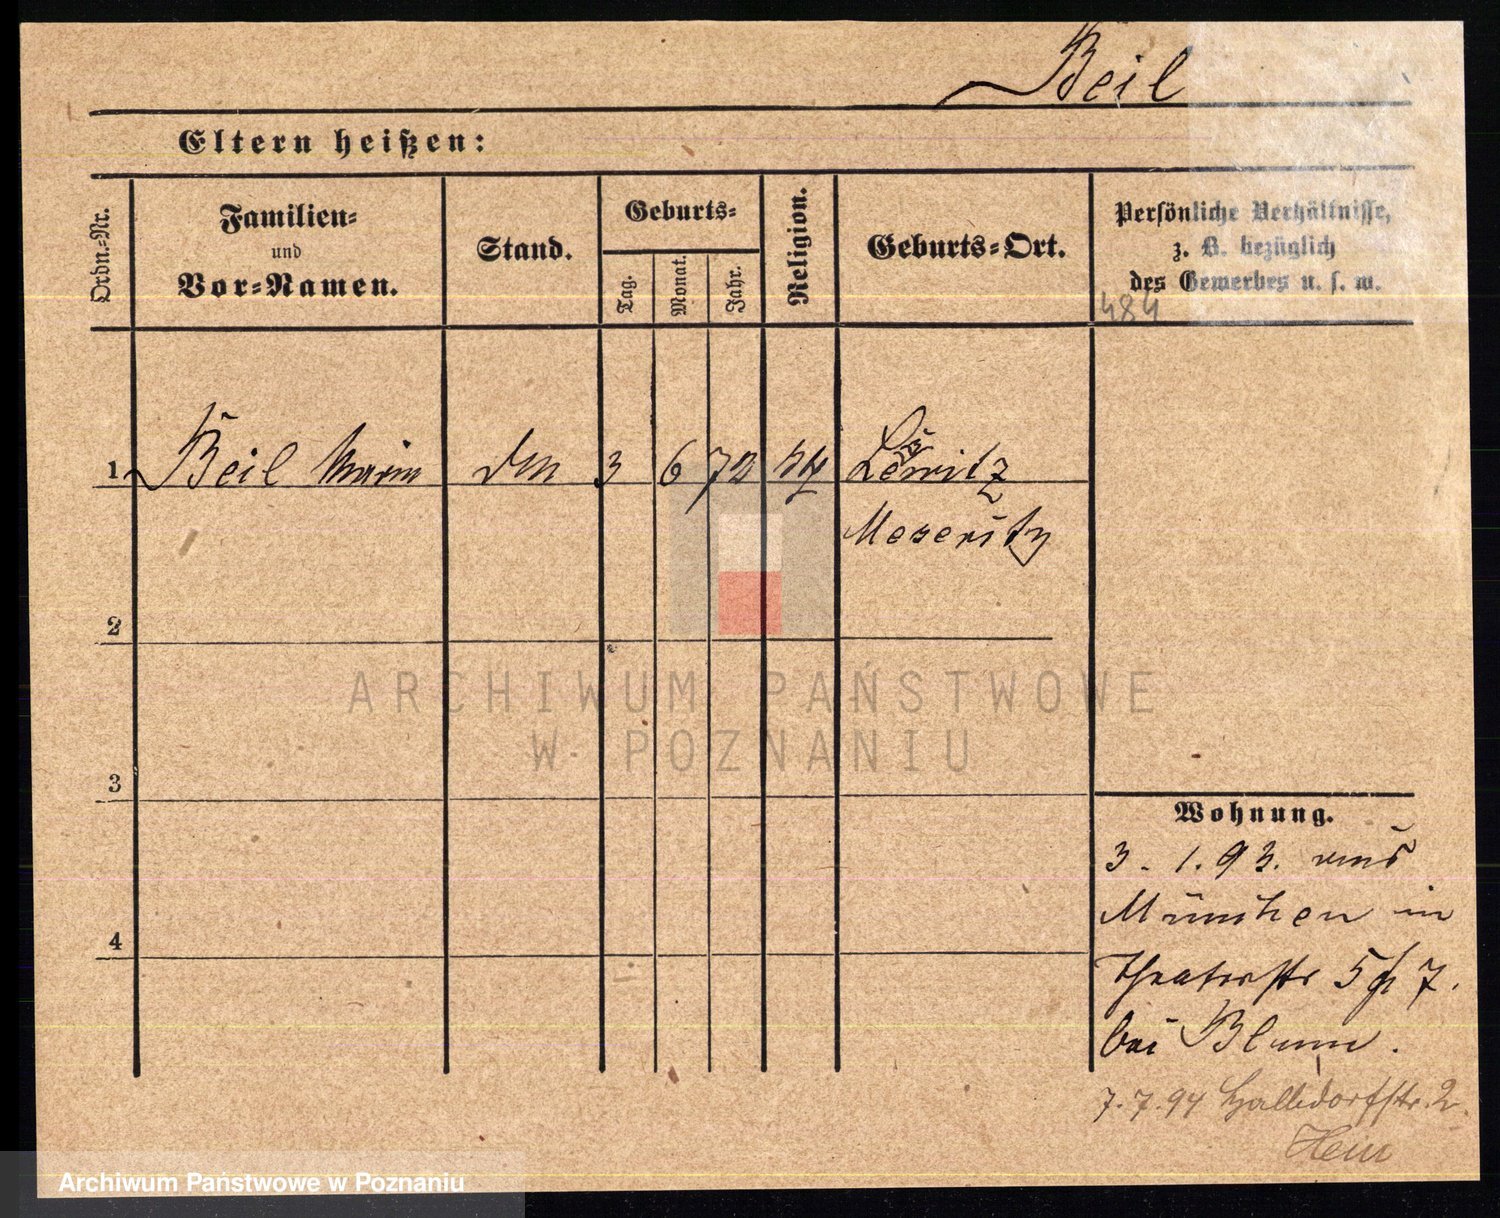 Beil
Eltern heißen:
Ordn.-Nr.
Familien-
und
Vor-Namen.
Stand.
Geburts-
Tag.
Monat.
Jahr.
Religion.
Geburts-Ort.
Persönliche Verhältnisse,
z. B. bezüglich
des Gewerbes u. s. w.
484
1
Beil Marie
3
6
72
Meseritz
2
3
4
Wohnung.
3. 1. 93. aus
München in
Theaterstr 5 7.
bei Blum.
7.7.94 2.
Hein
ARCHIWUM PAŃSTWOWE
W POZNANIU
Archiwum Państwowe w Poznaniu